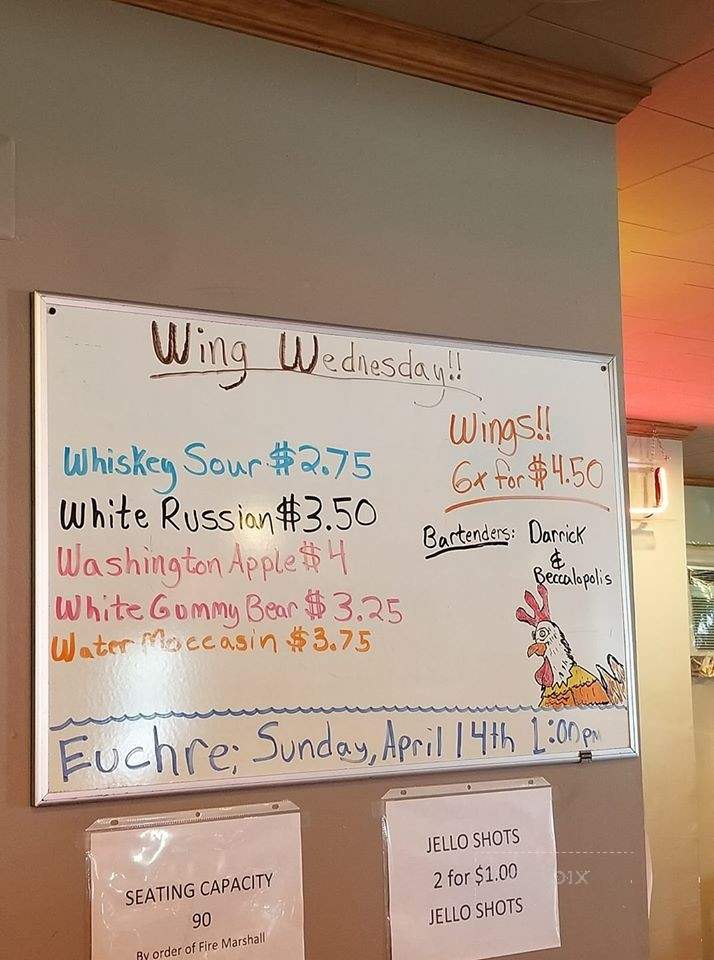 Wing Wednesday!!
Whiskey Sour $2.75
White Russian $3.50
Washington Apple $4
White Gummy Bear $3.25
Water Moccasin $3.75
Wings!!
6x for $4.50
Bartenders: Darrick
&
Beccalopolis
Euchre; Sunday, April 14th 1:00pm
SEATING CAPACITY
90
By order of Fire Marshall
JELLO SHOTS
2 for $1.00
JELLO SHOTS